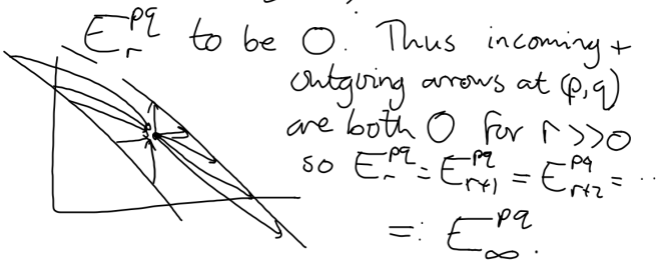 E_r^{pq} to be 0. Thus incoming +
outgoing arrows at (p,q)
are both 0 for r >> 0
so E_r^{pq} = E_{r+1}^{pq} = E_{r+2}^{pq} = ...
=: E_∞^{pq}.